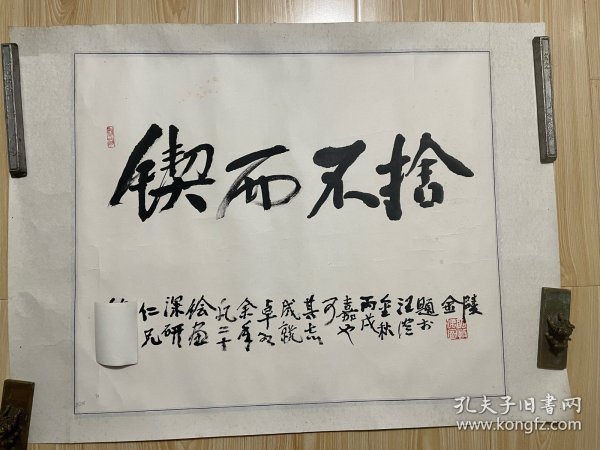 锲而不捨
仁兄
深研
绘画
凡二十
余年
卓有
成就
其志
可
嘉也
丙戌
金秋
汪澄
题于
金陵
孔夫子旧书网
www.kongfz.com